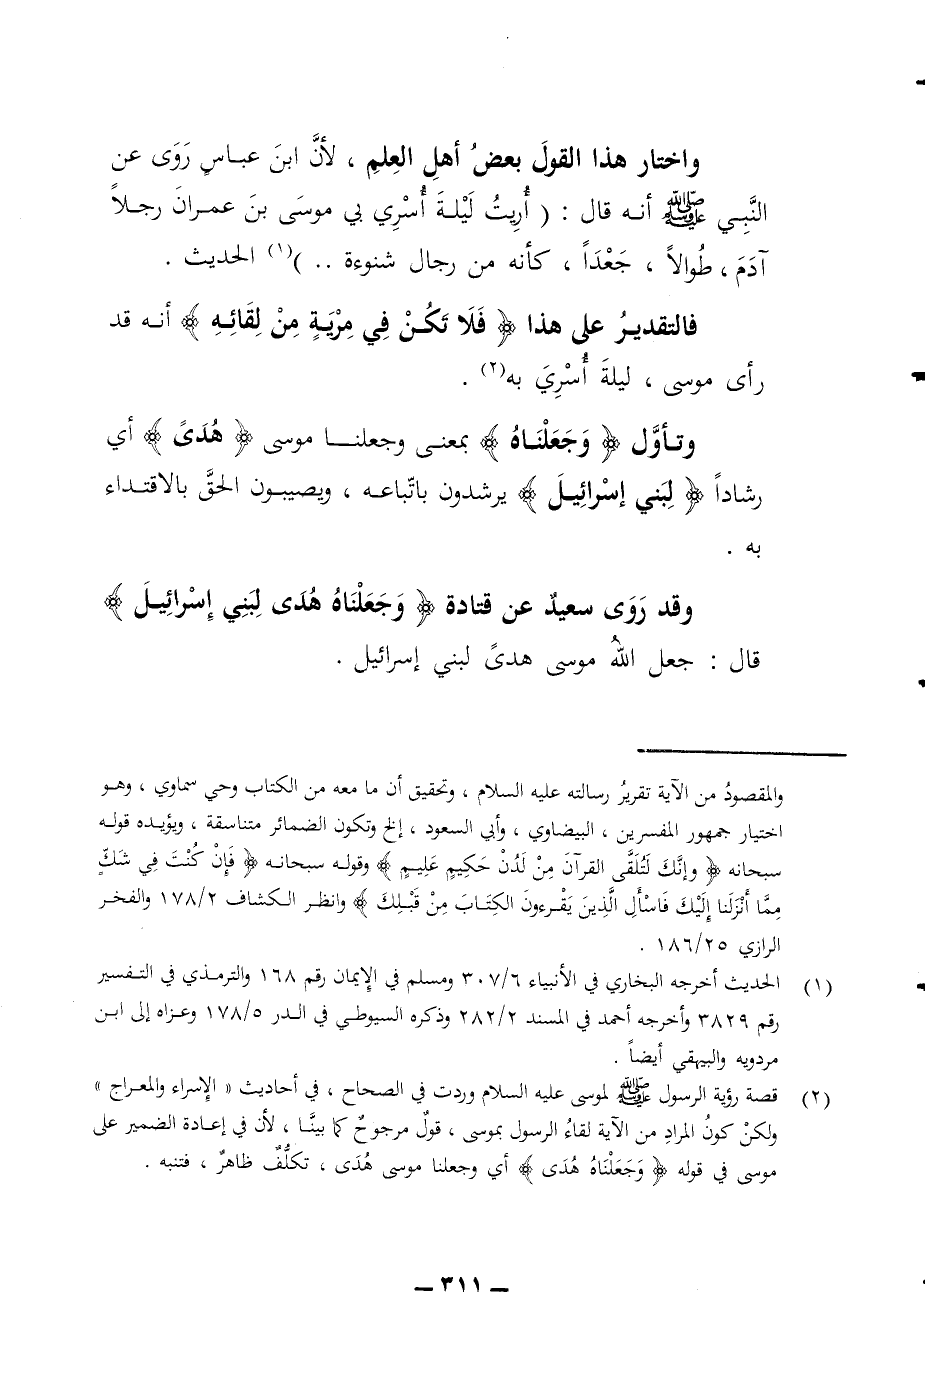 واختار هذا القولَ بعضُ أهلِ العِلمِ ، لأنَّ ابنَ عبـاسٍ رَوَى عن
النَّبِـي ﷺ أنـه قال : ( أُرِيتُ لَيْلـةَ أُسْرِي بي موسَى بنَ عمـرانَ رجـلاً
آدَمَ ، طُوالاً ، جَعْدَاً ، كأنه من رجال شنوءة .. )(١) الحديث .
فالتقديـرُ على هذا ﴿ فَلَا تَكُـنْ فِي مِرْيَـةٍ مِنْ لِقَائِـهِ ﴾ أنـه قد
رأى موسى ، ليلةَ أُسْرِيَ به(٢) .
وتـأوَّل ﴿ وَجَعَلْنَـاهُ ﴾ بمعنـى وجعلنـــا موسى ﴿ هُدَىً ﴾ أي
رشاداً ﴿ لِبَني إسْرائِيـلَ ﴾ يرشدون باتّباعـه ، ويصيبـون الحقَّ بالاقتـداء
به .
وقد رَوَى سعيدٌ عن قتادة ﴿ وَجَعَلْنَاهُ هُدَى لِبَنِي إِسْرَائِيـلَ ﴾
قال : جعل اللهُ موسى هدىً لبني إسرائيل .
والمقصودُ من الآية تقريرُ رسالته عليه السلام ، وتحقيق أن ما معه من الكتاب وحي سماوي ، وهـو
اختيار جمهور المفسرين ، البيضاوي ، وأبي السعود ، إلخ وتكون الضمائر متناسقة ، ويؤيده قولـه
سبحانه ﴿ وإنَّكَ لَتُلَقَّى القرآنَ مِنْ لَدُنْ حَكِيمٍ عَلِيمٍ ﴾ وقولـه سبحانـه ﴿ فَإِنْ كُنْتَ فِي شَكٍّ
مِمَّا أَنْزَلنا إِلَيْكَ فَاسْأَلِ الَّذِينَ يَقْـرءونَ الكِتَـابَ مِنْ قَبْـلِكَ ﴾ وانظـر الـكشاف ١٧٨/٢ والفخـر
الرازي ١٨٦/٢٥ .
(١) الحديث أخرجه البخاري في الأنبياء ٣٠٧/٦ ومسلم في الإيمان رقم ١٦٨ والترمـذي في التـفسير
رقم ٣٨٢٩ وأخرجه أحمد في المسند ٢٨٢/٢ وذكره السيوطي في الدر ١٧٨/٥ وعزاه إلى ابـن
مردويه والبيهقي أيضاً .
(٢) قصة رؤية الرسول ﷺ لموسى عليه السلام وردت في الصحاح ، في أحاديث « الإسراء والمعراج »
ولكنْ كونُ المرادِ من الآية لقاءُ الرسول بموسى ، قولٌ مرجوحٌ كما بينَّـا ، لأن في إعـادة الضميـر على
موسى في قوله ﴿ وَجَعَلْنَاهُ هُدَى ﴾ أي وجعلنا موسى هُدَى ، تكلُّفٌ ظاهرٌ ، فتنبه .
ـ ٣١١ ـ